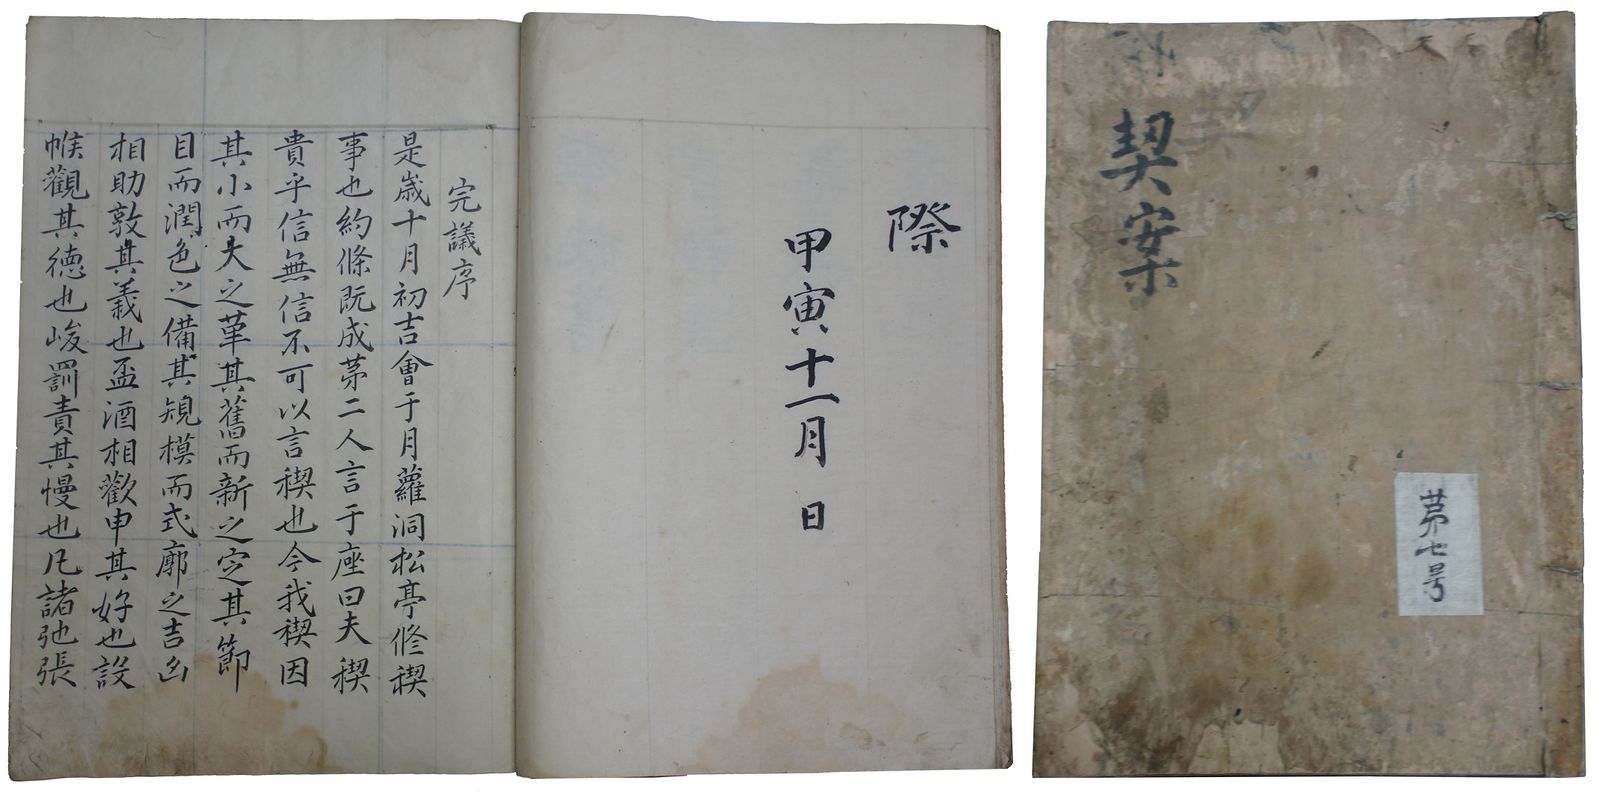 際
甲寅十一月 日
完議序
是歲十月初吉會于月蘿洞松亭修稧
事也約條既成茅二人言于座曰夫稧
貴乎信無信不可以言稧也今我稧因
其小而大之革其舊而新之定其節
目而潤色之備其規模而式廓之吉凶
相助敦其義也盃酒相歡申其好也設
帿觀其德也峻罰責其慢也凡諸弛張
契案
茅七号